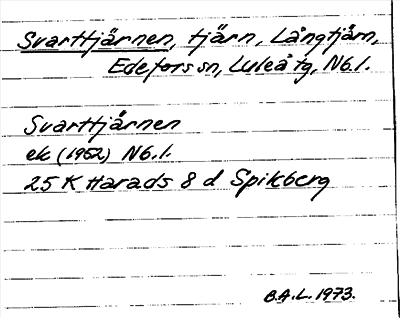 Svarttjärnen, tjärn, Långtjärn,
Edefors sn, Luleå tg, Nb.l.
Svarttjärnen
ek (1962) Nb.l.
25 K Harads 8 d Spikberg
B.A.L. 1973.